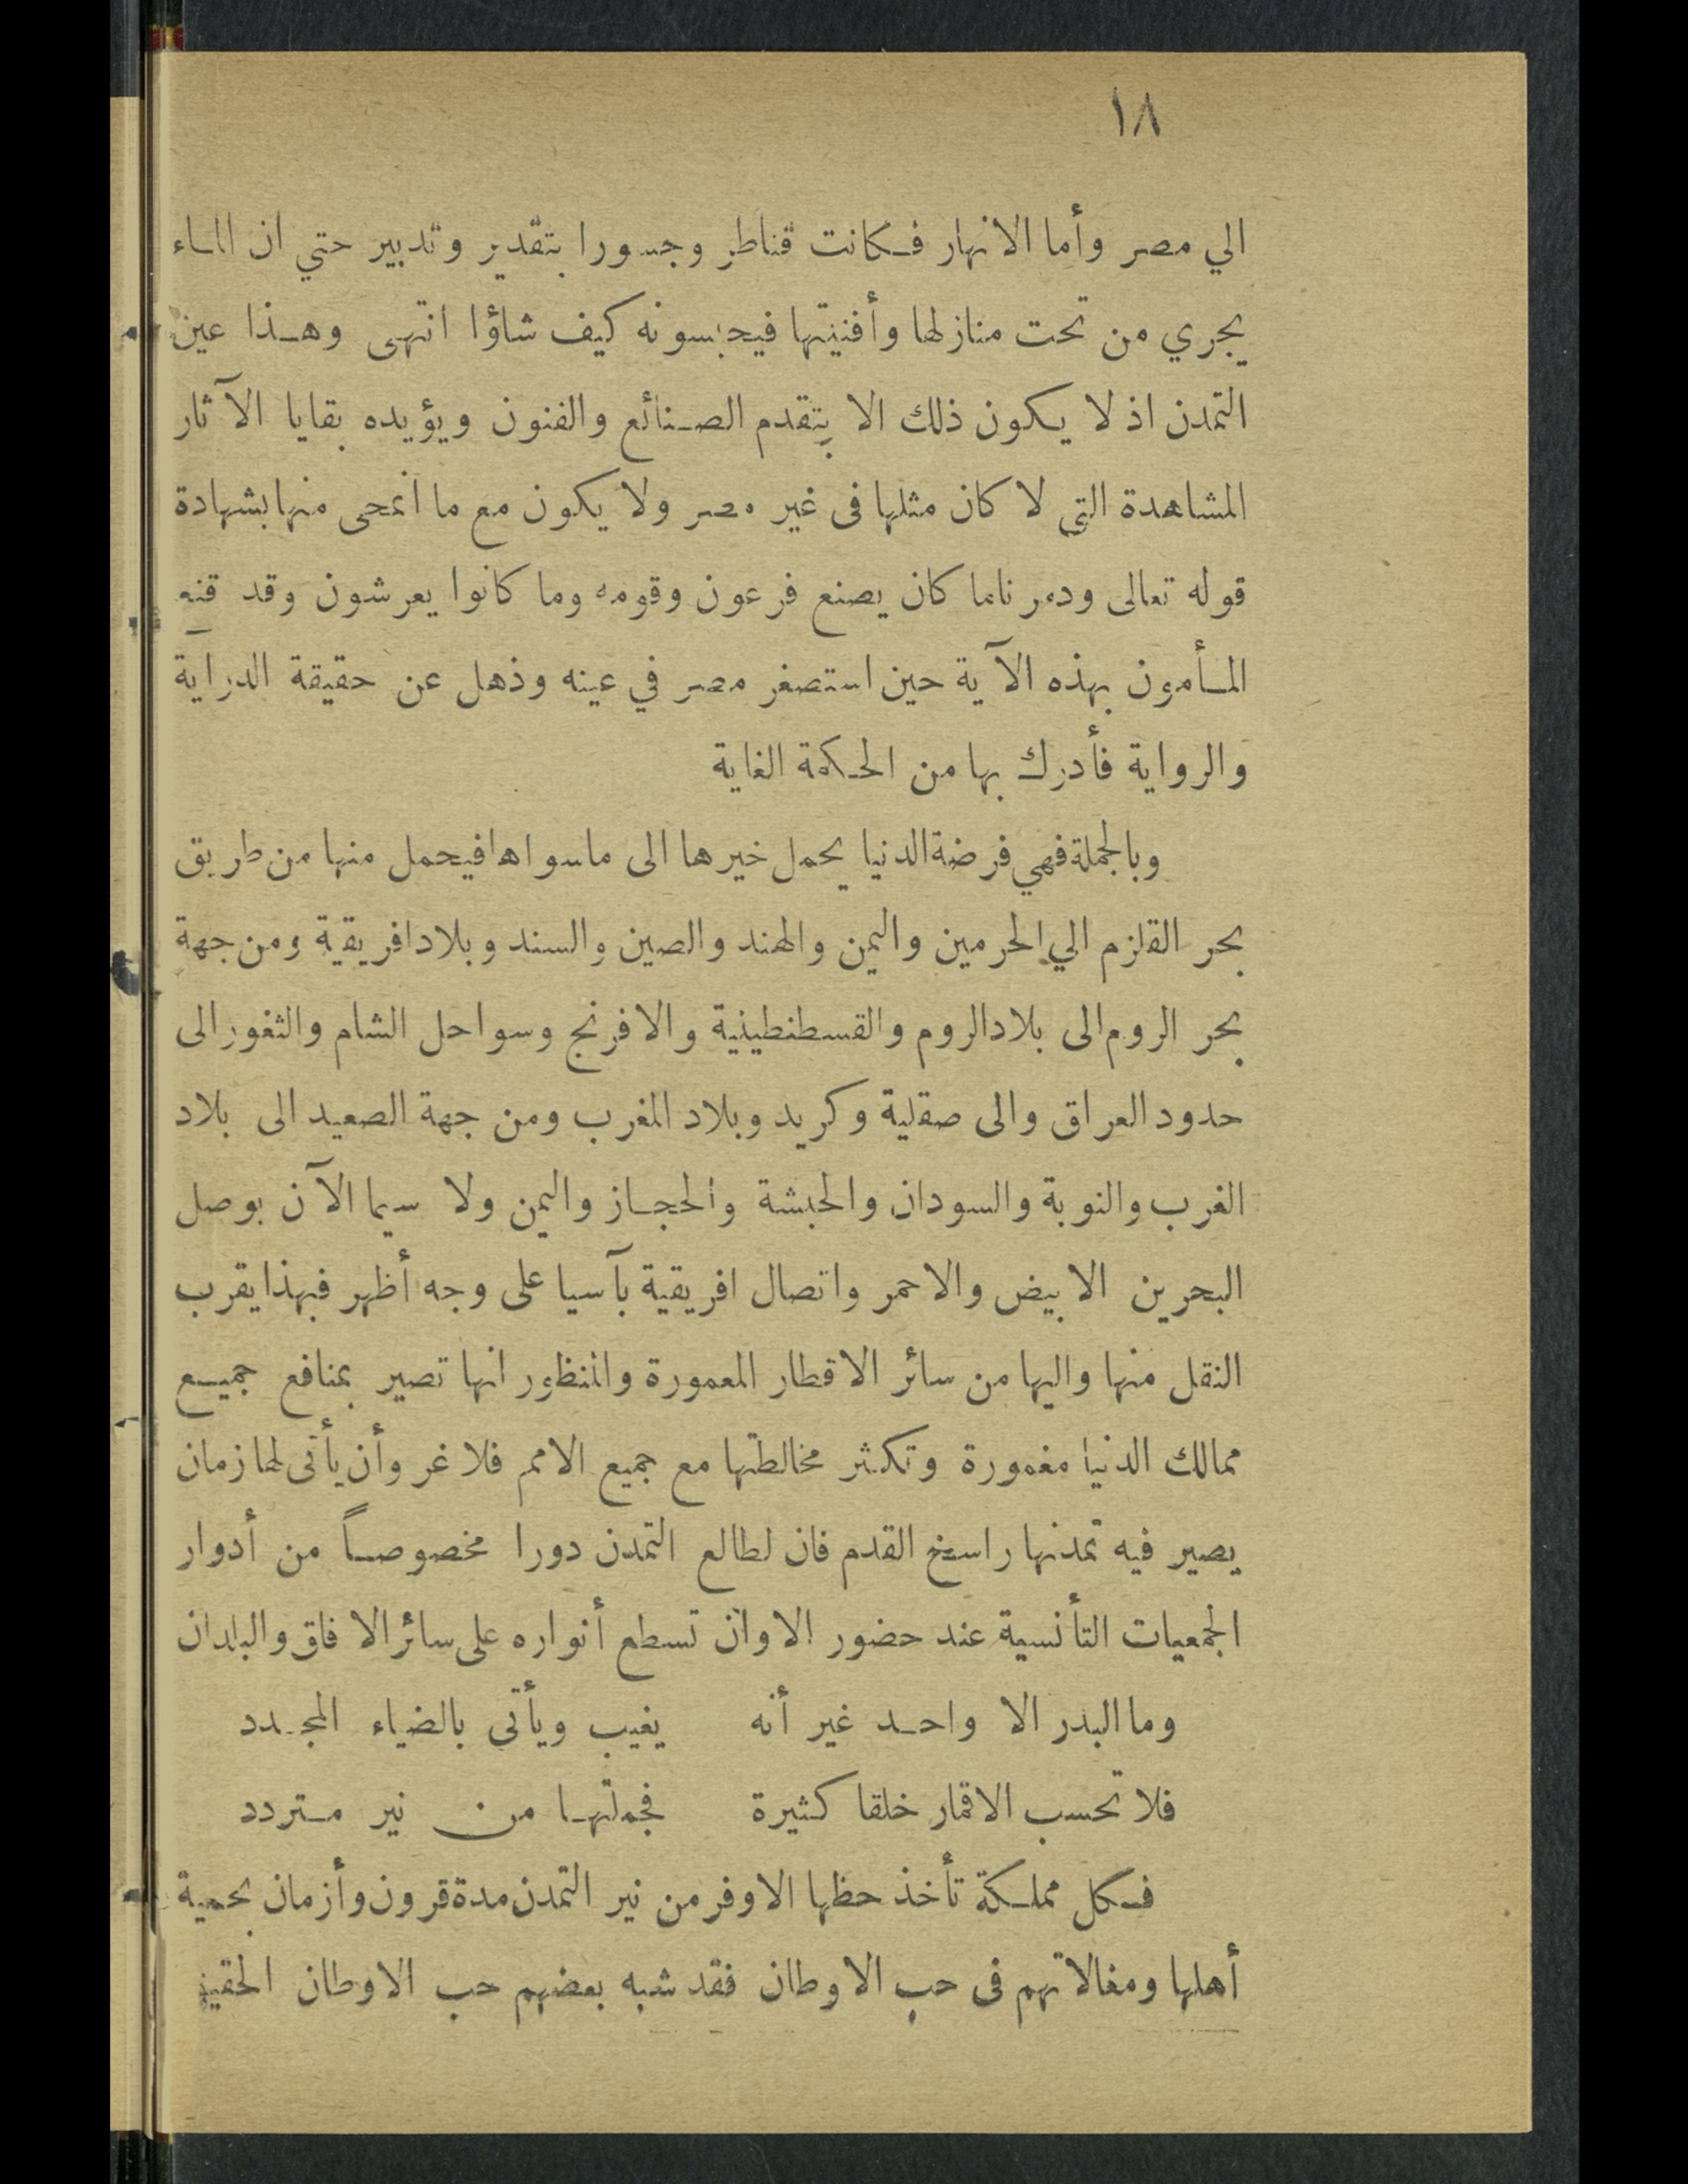 ١٨
الي مصر وأما الانهار فكانت قناطر وجسورا بتقدير وتدبير حتي ان الماء
يجري من تحت منازلها وأفنيتها فيحبسونه كيف شاؤا انتهى وهذا عين
التمدن اذ لا يكون ذلك الا بتقدم الصنائع والفنون ويؤيده بقايا الآثار
المشاهدة التي لا كان مثلها فى غير مصر ولا يكون مع ما انمحى منها بشهادة
قوله تعالى ودمرنا ما كان يصنع فرعون وقومه وما كانوا يعرشون وقد قنع
المأمون بهذه الآية حين استصغر مصر في عينه وذهل عن حقيقة الدراية
والرواية فأدرك بها من الحكمة الغاية
وبالجملة فهي فرضة الدنيا يحمل خيرها الى ما سواها فيحمل منها من طريق
بحر القلزم الي الحرمين واليمن والهند والصين والسند وبلاد افريقية ومن جهة
بحر الروم الى بلاد الروم والقسطنطينية والافرنج وسواحل الشام والثغور الى
حدود العراق والى صقلية وكريد وبلاد المغرب ومن جهة الصعيد الى بلاد
الغرب والنوبة والسودان والحبشة والحجاز واليمن ولا سيما الآن بوصل
البحرين الابيض والاحمر واتصال افريقية بآسيا على وجه أظهر فبهذا يقرب
النقل منها واليها من سائر الاقطار المعمورة والمنظور انها تصير بمنافع جميع
ممالك الدنيا مغمورة وتكثر مخالطتها مع جميع الامم فلا غر وأن يأتى لها زمان
يصير فيه تمدنها راسخ القدم فان لطالع التمدن دورا مخصوصاً من أدوار
الجمعيات التأنسية عند حضور الاوان تسطع أنواره على سائر الافاق والبلدان
وما البدر الا واحد غير أنه يغيب ويأتى بالضياء المجدد
فلا تحسب الاقمار خلقا كثيرة فجملتها من نير متردد
فكل مملكة تأخذ حظها الاوفر من نير التمدن مدة قرون وأزمان بحمية
أهلها ومغالاتهم فى حب الاوطان فقد شبه بعضهم حب الاوطان الحقيقي